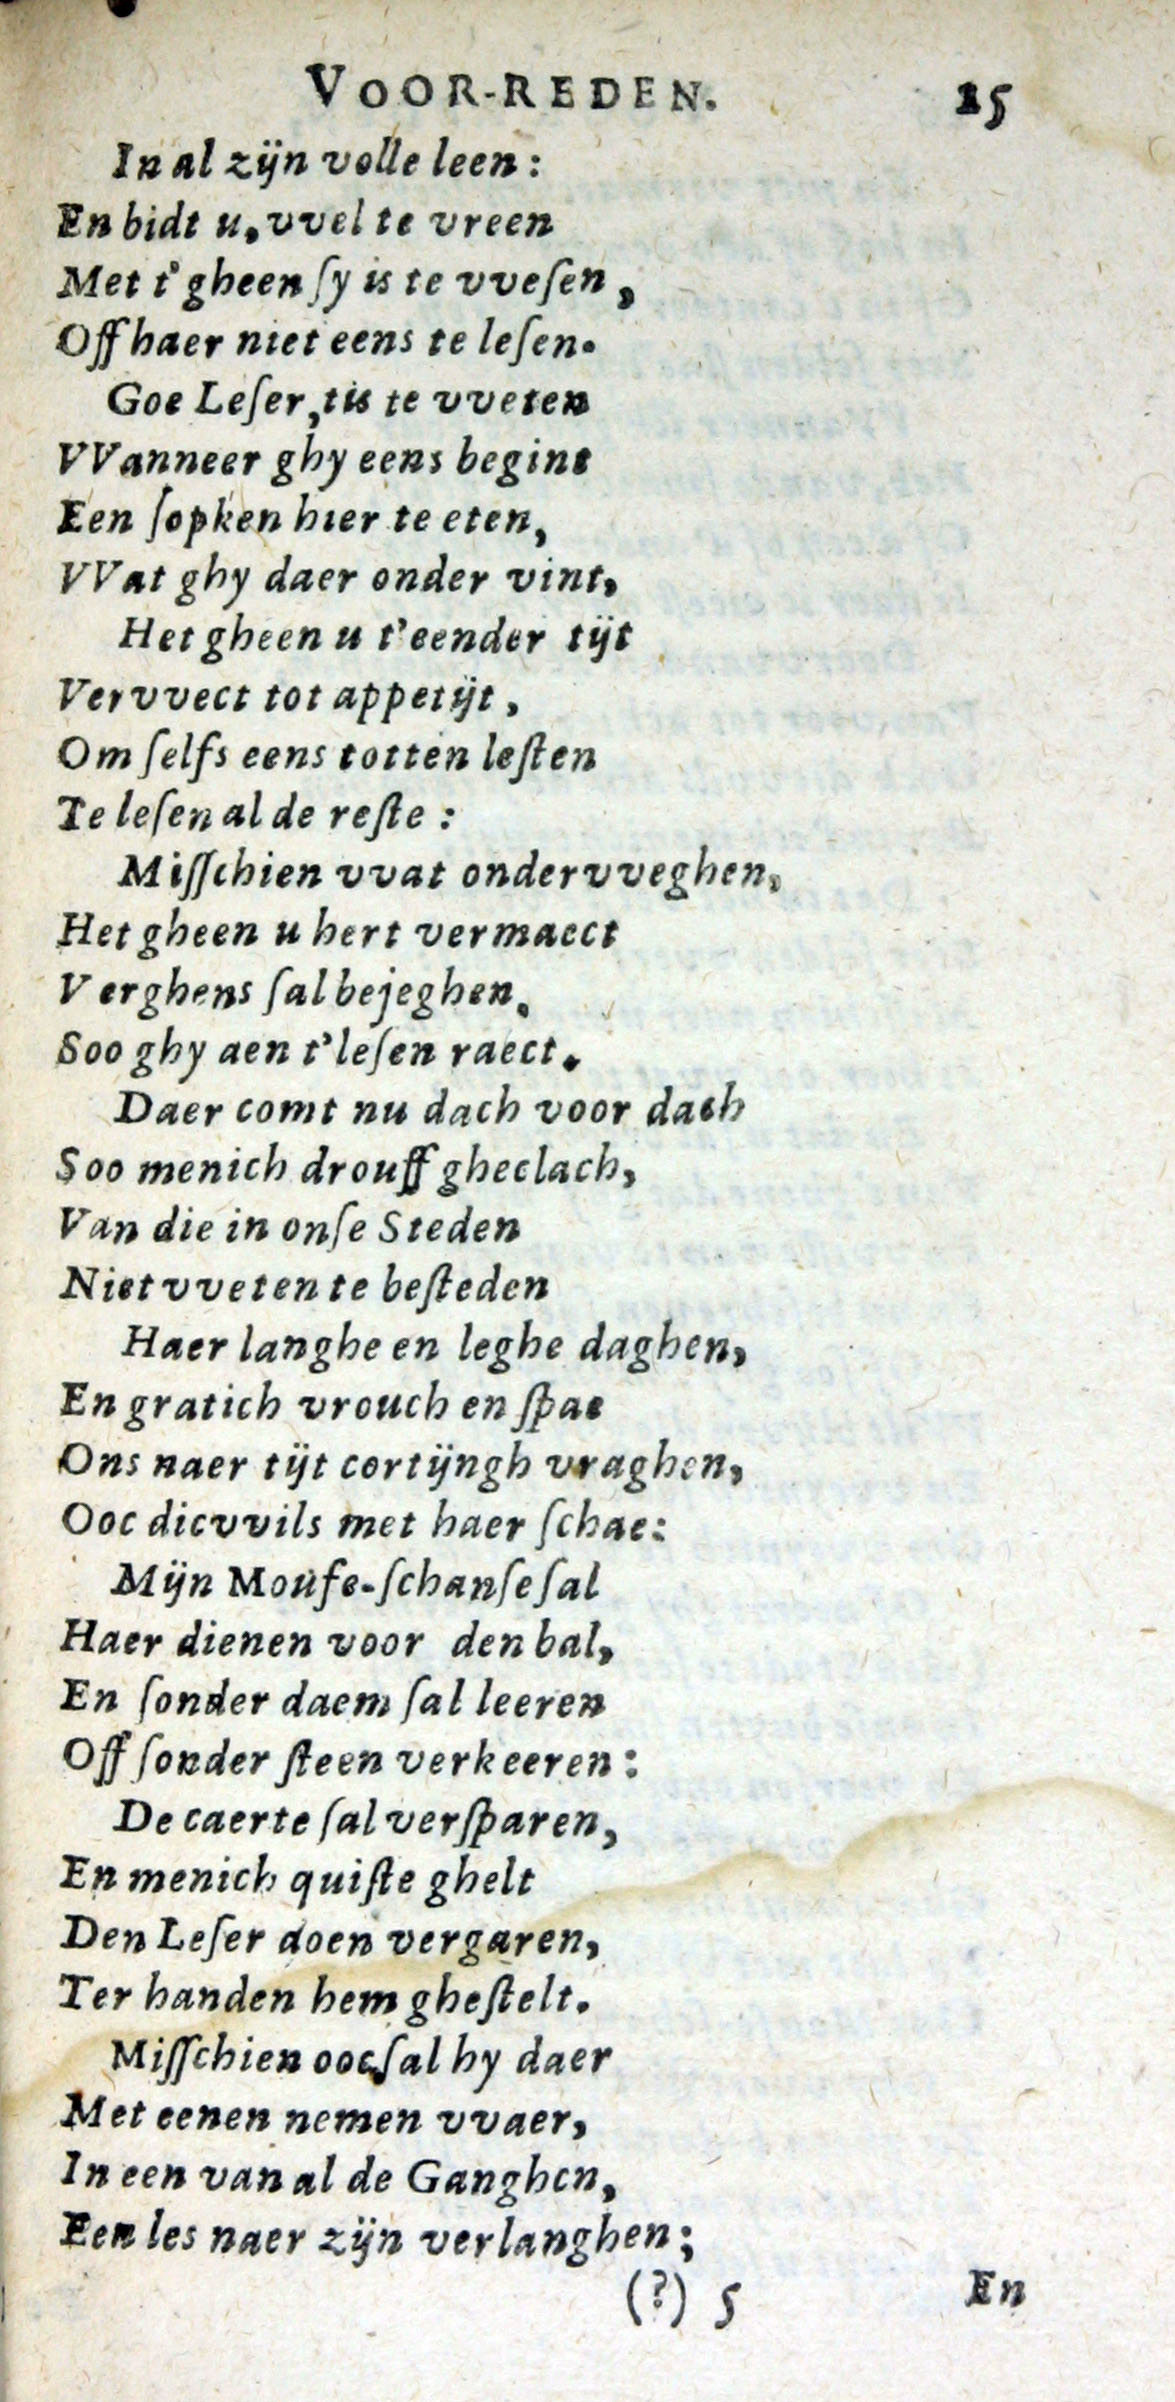 VOOR-REDEN. 25
In al zijn volle leen:
En bidt u, vvel te vreen
Met t'gheen ſy is te vveſen,
Off haer niet eens te leſen.
Goe Leſer, tis te vveten
VVanneer ghy eens begint
Een ſopken hier te eten,
VVat ghy daer onder vint,
Het gheen u t'eender tijt
Vervvect tot appetijt,
Om ſelfs eens totten leſten
Te leſen al de reſte:
Miſſchien vvat ondervveghen,
Het gheen u hert vermaect
Verghens ſal bejeghen.
Soo ghy aen t'leſen raect.
Daer comt nu dach voor dach
Soo menich drouff gheclach,
Van die in onſe Steden
Niet vveten te beſteden
Haer langhe en leghe daghen,
En gratich vrouch en ſpae
Ons naer tijt cortijngh vraghen,
Ooc dicvvils met haer ſchae:
Mijn Moufe-ſchanſe ſal
Haer dienen voor den bal,
En ſonder daem ſal leeren
Off ſonder ſteen verkeeren:
De caerte ſal verſparen,
En menich quiſte ghelt
Den Leſer doen vergaren,
Ter handen hem gheſtelt.
Miſſchien ooc ſal hy daer
Met eenen nemen vvaer,
In een van al de Ganghen,
Een les naer zijn verlanghen;
(?) 5 En